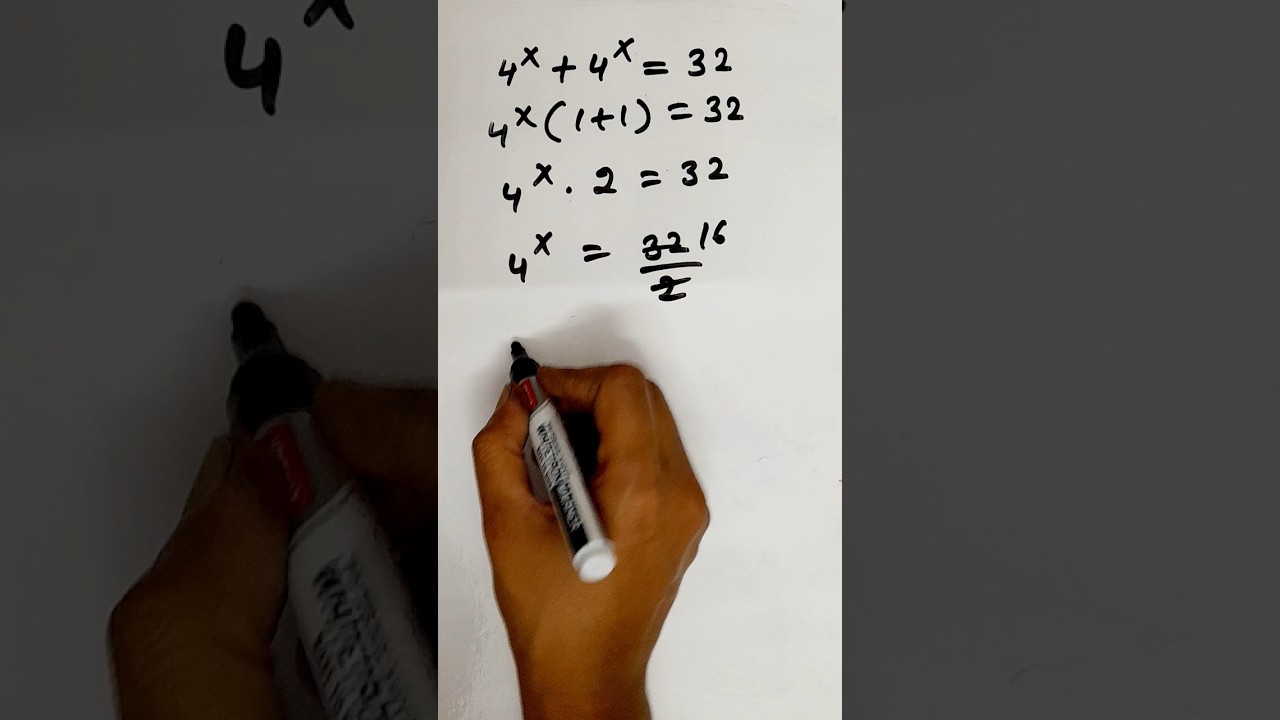 4^x + 4^x = 32
4^x (1+1) = 32
4^x . 2 = 32
4^x = 32/2 16
WHITEBOARD MARKER